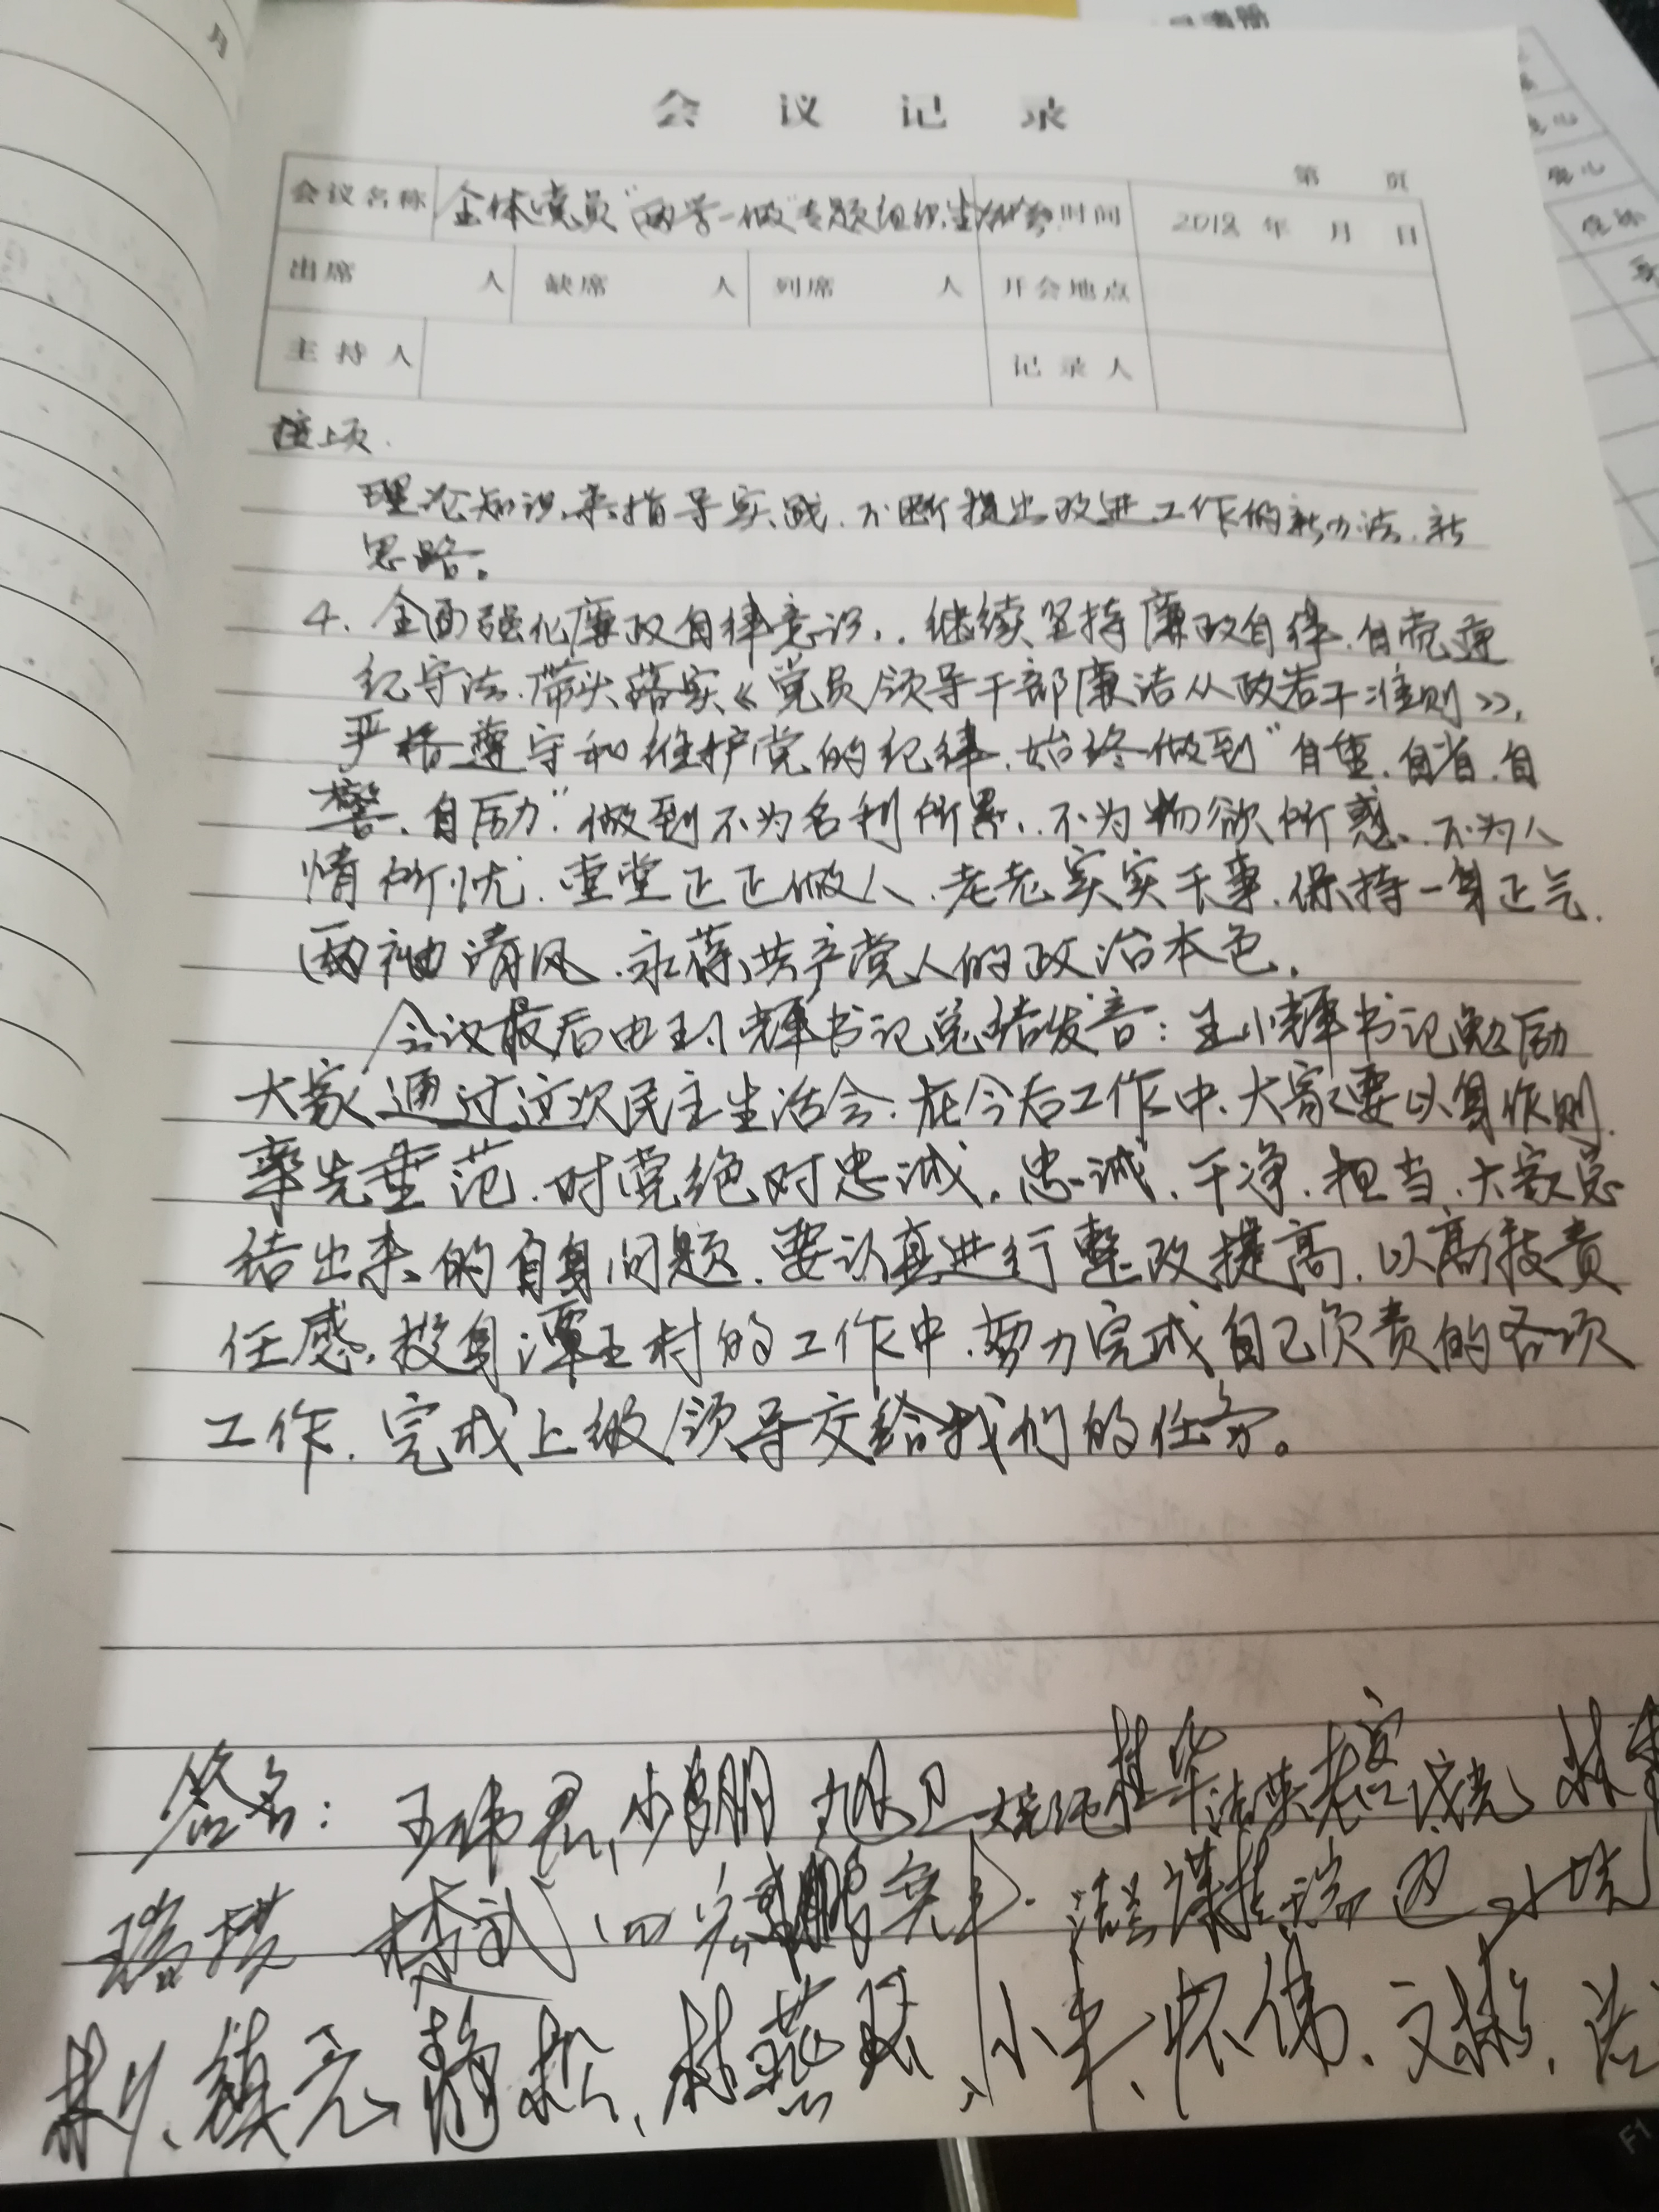 会议记录
第 页
会议名称 全体党员“两学一做”专题组织生活会 时间 2018 年 月 日
出席 人 缺席 人 列席 人 开会地点
主持人 记录人
接上页.
理论知识来指导实践.不断提出改进工作的新办法.新
思路。
4.全面强化廉政自律意识,.继续坚持廉政自律.自觉遵
纪守法.带头落实《党员领导干部廉洁从政若干准则》,
严格遵守和维护党的纪律.始终做到“自重.自省.自
警.自励”.做到不为名利所累,.不为物欲所惑,.不为人
情所忧.堂堂正正做人.老老实实干事.保持一身正气.
两袖清风.永葆共产党人的政治本色.
会议最后由王小辉书记总结发言:王小辉书记勉励
大家通过这次民主生活会:在今后工作中.大家要以身作则.
率先垂范.对党绝对忠诚.忠诚.干净.担当.大家总
结出来的自身问题.要认真进行整改提高.以高技责
任感.投身潭王村的工作中.努力完成自己负责的各项
工作.完成上级领导交给我们的任务。
签名: 王玮君 少鹏 旭卫 桂华 洁英
瑞琪
镇亮 静松 林燕 小丰、怀伟.文彬,
F1